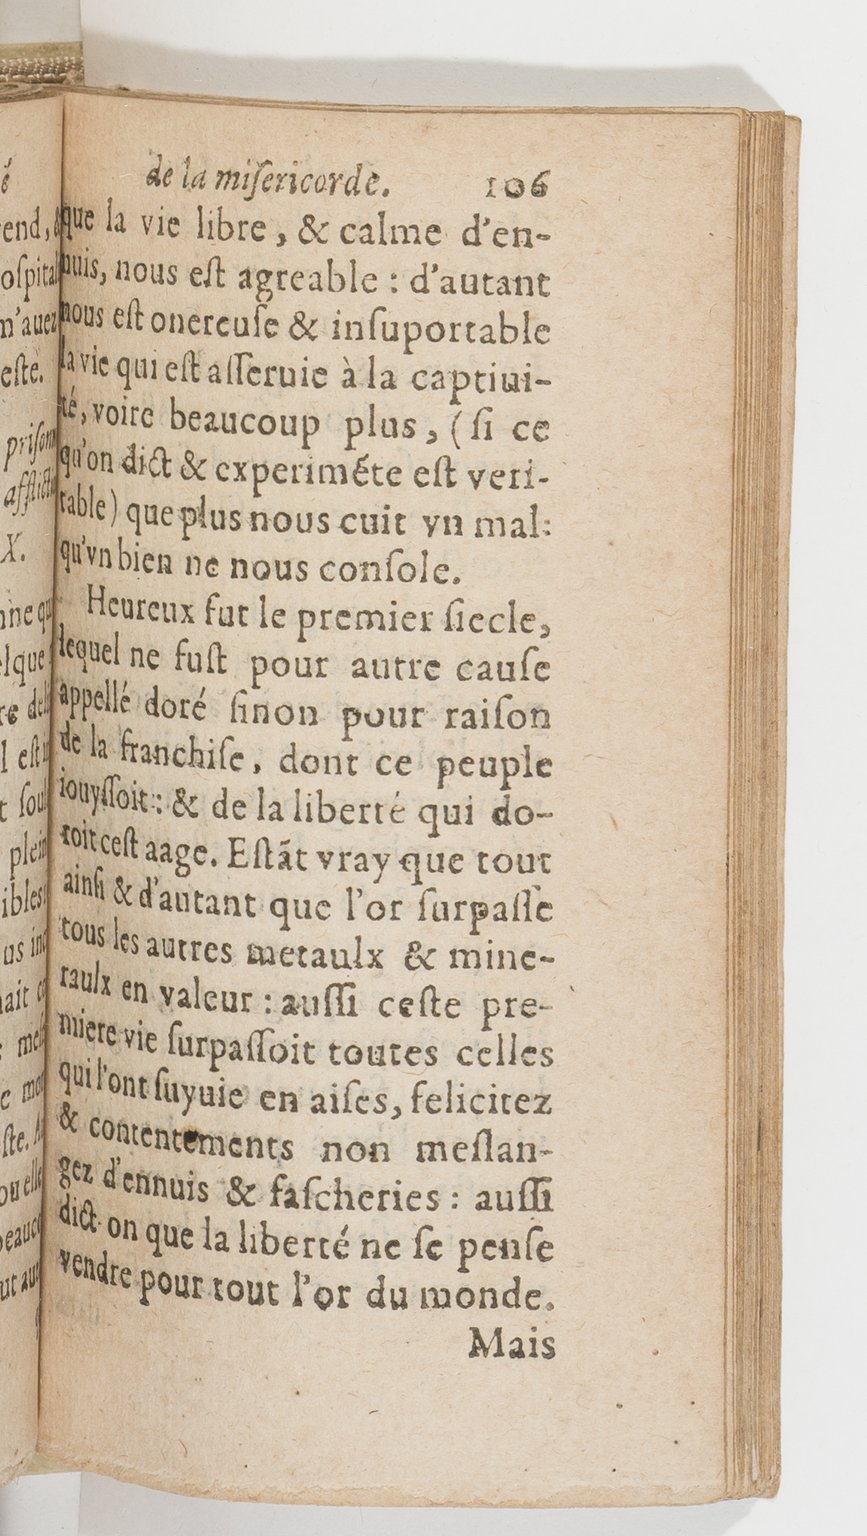 de la miſericorde. 106
que la vie libre, & calme d'en-
nuis, nous eſt agreable : d'autant
nous eſt onereuſe & inſuportable
la vie qui eſt aſſeruie à la captiui-
té, voire beaucoup plus, (ſi ce
qu'on dict & experimẽte eſt veri-
table) que plus nous cuit vn mal:
qu'vn bien ne nous conſole.
Heureux fut le premier ſiecle,
lequel ne fuſt pour autre cauſe
appellé doré ſinon pour raiſon
de la franchiſe, dont ce peuple
iouyſſoit : & de la liberté qui do-
roit ceſt aage. Eſtãt vray que tout
ainſi & d'autant que l'or ſurpaſſe
tous les autres metaulx & mine-
raulx en valeur : auſſi ceſte pre-
miere vie ſurpaſſoit toutes celles
qui l'ont ſuyuie en aiſes, felicitez
& contentements non meſlan-
gez d'ennuis & faſcheries : auſſi
dict on que la liberté ne ſe penſe
vendre pour tout l'or du monde.
Mais